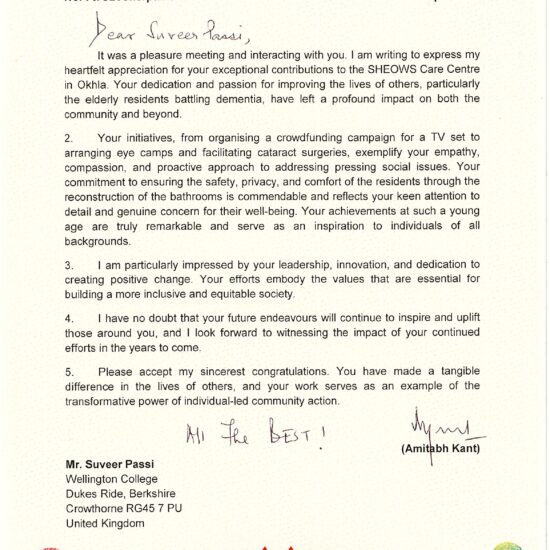 Dear Suveer Passi,
It was a pleasure meeting and interacting with you. I am writing to express my
heartfelt appreciation for your exceptional contributions to the SHEOWS Care Centre
in Okhla. Your dedication and passion for improving the lives of others, particularly
the elderly residents battling dementia, have left a profound impact on both the
community and beyond.
2. Your initiatives, from organising a crowdfunding campaign for a TV set to
arranging eye camps and facilitating cataract surgeries, exemplify your empathy,
compassion, and proactive approach to addressing pressing social issues. Your
commitment to ensuring the safety, privacy, and comfort of the residents through the
reconstruction of the bathrooms is commendable and reflects your keen attention to
detail and genuine concern for their well-being. Your achievements at such a young
age are truly remarkable and serve as an inspiration to individuals of all
backgrounds.
3. I am particularly impressed by your leadership, innovation, and dedication to
creating positive change. Your efforts embody the values that are essential for
building a more inclusive and equitable society.
4. I have no doubt that your future endeavours will continue to inspire and uplift
those around you, and I look forward to witnessing the impact of your continued
efforts in the years to come.
5. Please accept my sincerest congratulations. You have made a tangible
difference in the lives of others, and your work serves as an example of the
transformative power of individual-led community action.
All The BEST!
(Amitabh Kant)
Mr. Suveer Passi
Wellington College
Dukes Ride, Berkshire
Crowthorne RG45 7 PU
United Kingdom